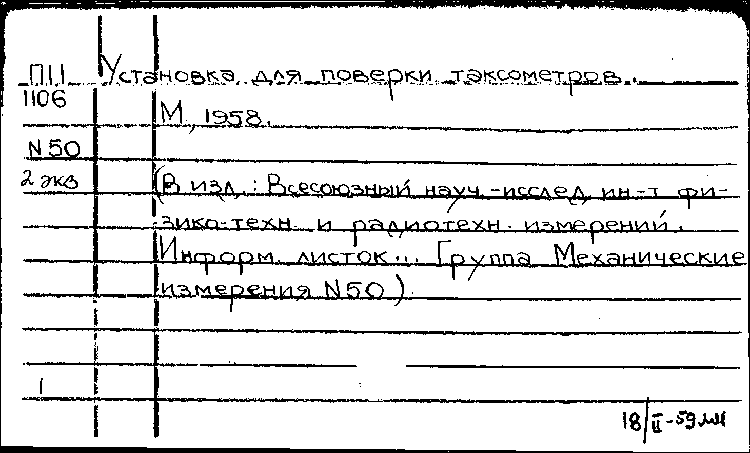 П11 Установка для поверки таксометров.
1106
М, 1958.
N50
2 экз (В изд.: Всесоюзный науч.-исслед. ин-т фи-
зико-техн. и радиотехн. измерений.
Информ. листок... Группа Механические
измерения N50).
1
18/II-59